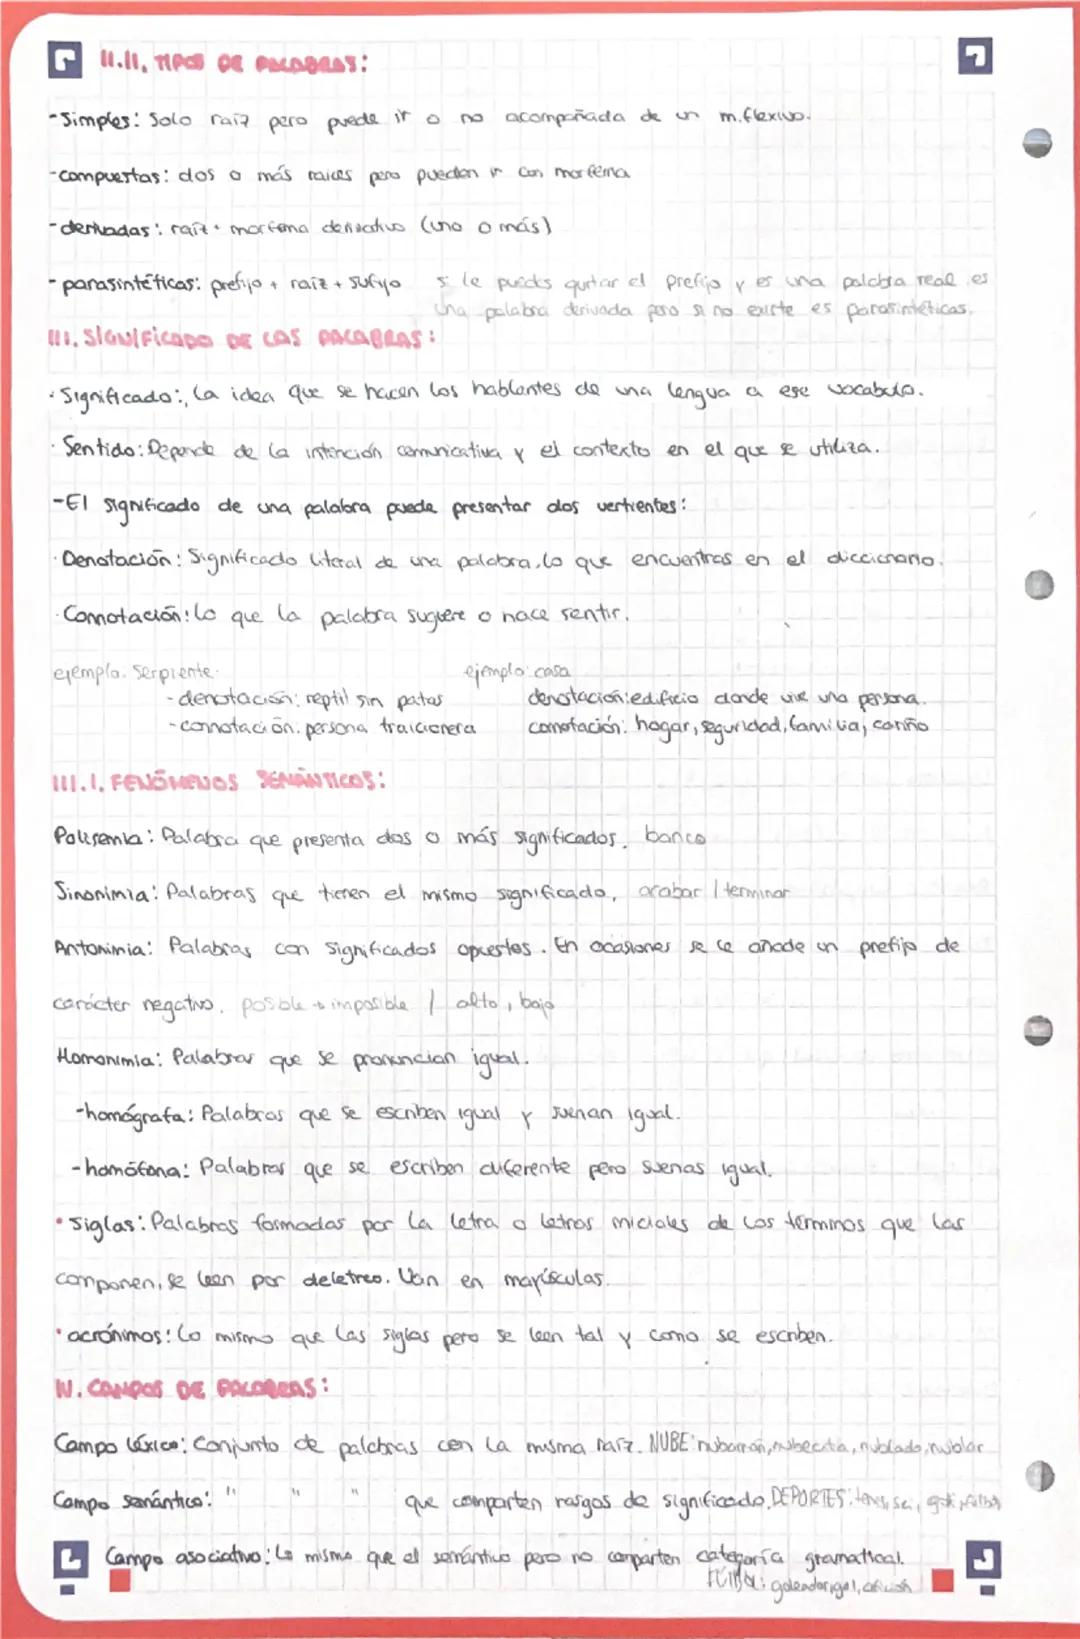 II.II. TIPOS DE PALABRAS:
-Simples: Solo raíz pero puede ir o no acompañada de un m.flexivo.
-compuestas: dos o más raices pero pueden ir con morfema
-derivadas: raíz + morfema derivativo (uno o más)
-parasintéticas: prefijo + raíz + sufijo si le puedes quitar el prefijo y es una palabra real es
una palabra derivada pero si no existe es parasintéticas.
III. SIGNIFICADO DE LAS PALABRAS:
·Significado: La idea que se hacen los hablantes de una lengua a ese vocabulo.
·Sentido: Depende de la intención comunicativa y el contexto en el que se utiliza.
-El significado de una palabra puede presentar dos vertientes:
·Denotación: Significado literal de una palabra, lo que encuentras en el diccionario.
·Connotación: Lo que la palabra sugiere o hace sentir.
ejemplo: Serpiente. ejemplo: casa
-denotación: reptil sin patas denotación: edificio donde vive una persona.
-connotación: persona traicionera connotación: hogar, seguridad, familia, cariño
III.I. FENÓMENOS SEMÁNTICOS:
Polisemia: Palabra que presenta dos o más significados. banco
Sinonimia: Palabras que tienen el mismo significado, acabar / terminar
Antonimia: Palabras con significados opuestos. En ocasiones se le añade un prefijo de
carácter negativo. posible → imposible / alto, bajo
Homonimia: Palabras que se pronuncian igual.
-homógrafa: Palabras que se escriben igual y suenan igual.
-homófona: Palabras que se escriben diferente pero suenas igual.
•Siglas: Palabras formadas por la letra o letras iniciales de los términos que las
componen, se leen por deletreo. Van en mayúsculas.
•acrónimos: Lo mismo que las siglas pero se leen tal y como se escriben.
IV. CAMPOS DE PALABRAS:
Campo léxico: Conjunto de palabras con la misma raíz. NUBE: nubarrón, nubecita, nublado, nublar
Campo semántico: " " " que comparten rasgos de significado. DEPORTES: tenis,
Campo asociativo: Lo mismo que el semántico pero no comparten categoría gramatical.
gol,